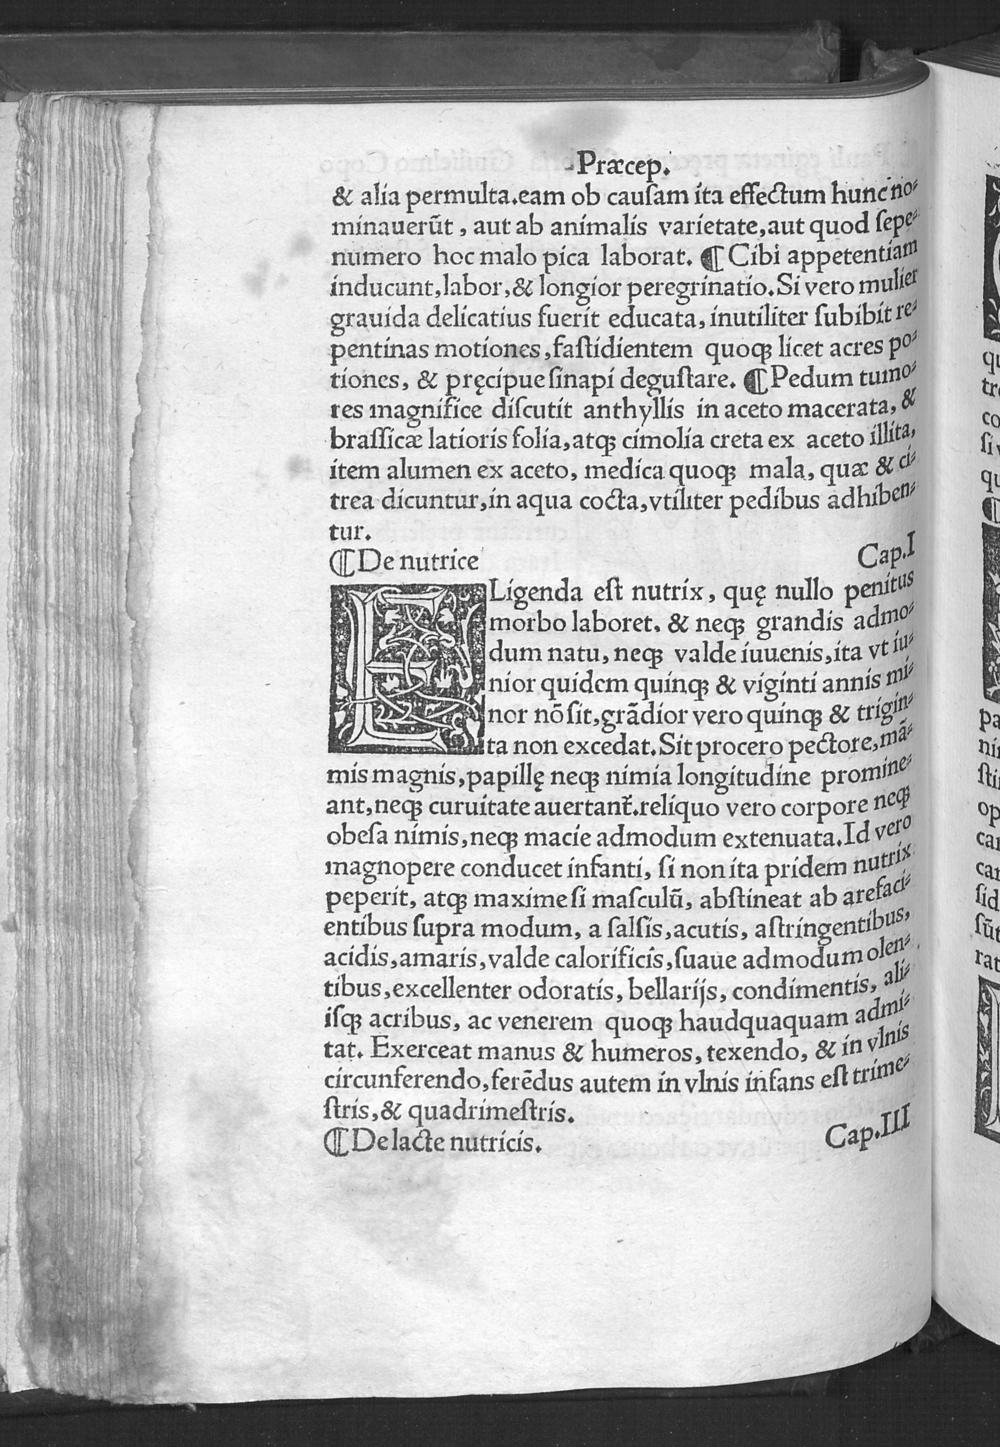 Præcep.
& alia permulta.eam ob cauſam ita effectum hunc no⸗
minauerūt, aut ab animalis varietate,aut quod ſepe⸗
numero hoc malo pica laborat. ¶ Cibi appetentiam
inducunt,labor,& longior peregrinatio.Si vero mulier
grauida delicatius fuerit educata, inutiliter ſubibit re⸗
pentinas motiones,faſtidientem quoqꝫ licet acres po⸗
tiones, & pręcipue ſinapi deguſtare. ¶ Pedum tumo⸗
res magnifice diſcutit anthyllis in aceto macerata, &
braſſicæ latioris folia,atqꝫ cimolia creta ex aceto illita,
item alumen ex aceto, medica quoqꝫ mala, quæ & ci⸗
trea dicuntur,in aqua cocta,vtiliter pedibus adhiben⸗
tur.
¶ De nutrice Cap.I
ELigenda eſt nutrix, quę nullo penitus
morbo laboret. & neqꝫ grandis admo⸗
dum natu, neqꝫ valde iuuenis,ita vt iu⸗
nior quidem quinqꝫ & viginti annis mi⸗
nor nō ſit,grādior vero quinqꝫ & trigin⸗
ta non excedat.Sit procero pectore,mā⸗
mis magnis,papillę neqꝫ nimia longitudine promine⸗
ant,neqꝫ curuitate auertant᷑.reliquo vero corpore neqꝫ
obeſa nimis,neqꝫ macie admodum extenuata.Id vero
magnopere conducet infanti, ſi non ita pridem nutrix
peperit, atqꝫ maxime ſi maſculū, abſtineat ab arefaci⸗
entibus ſupra modum, a ſalſis,acutis, aſtringentibus,
acidis,amaris,valde calorificis,ſuaue admodum olen⸗
tibus,excellenter odoratis, bellarijs, condimentis, ali⸗
iſqꝫ acribus, ac venerem quoqꝫ haudquaquam admi⸗
tat. Exerceat manus & humeros, texendo, & in vlnis
circunferendo,ferēdus autem in vlnis infans eſt trime⸗
ſtris,& quadrimeſtris.
¶ De lacte nutricis. Cap.III